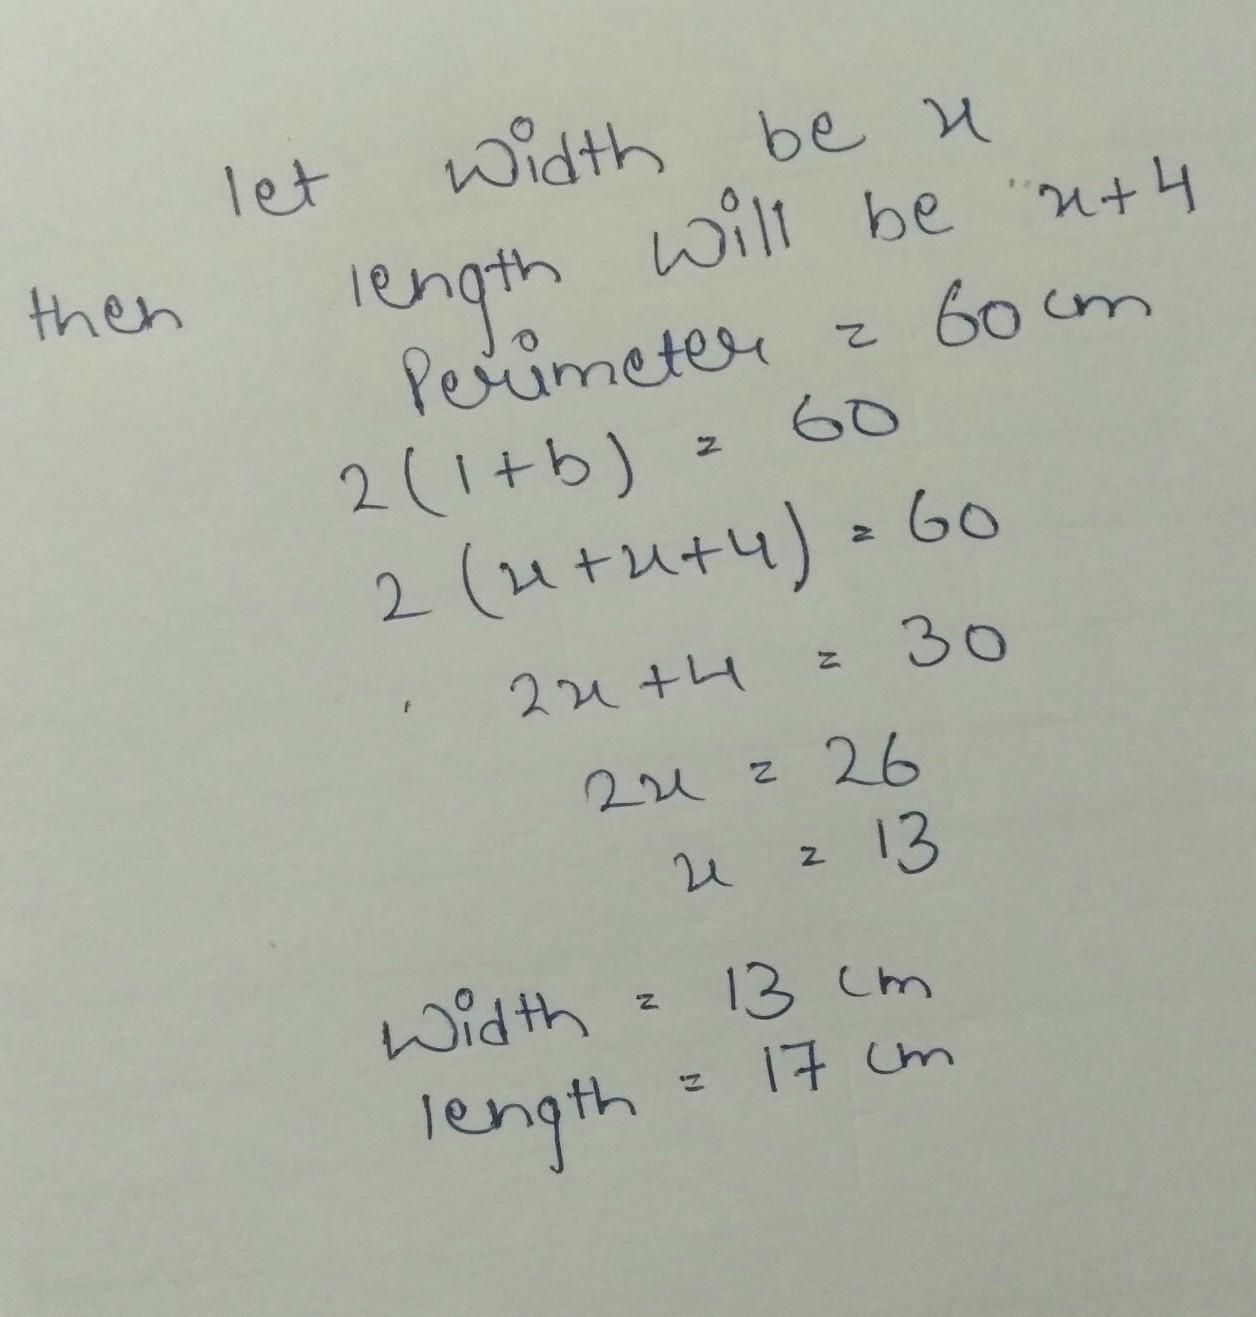 let width be x
then length will be x+4
Perimeter = 60 cm
2(l+b) = 60
2(x+x+4) = 60
2x+4 = 30
2x = 26
x = 13
Width = 13 cm
length = 17 cm